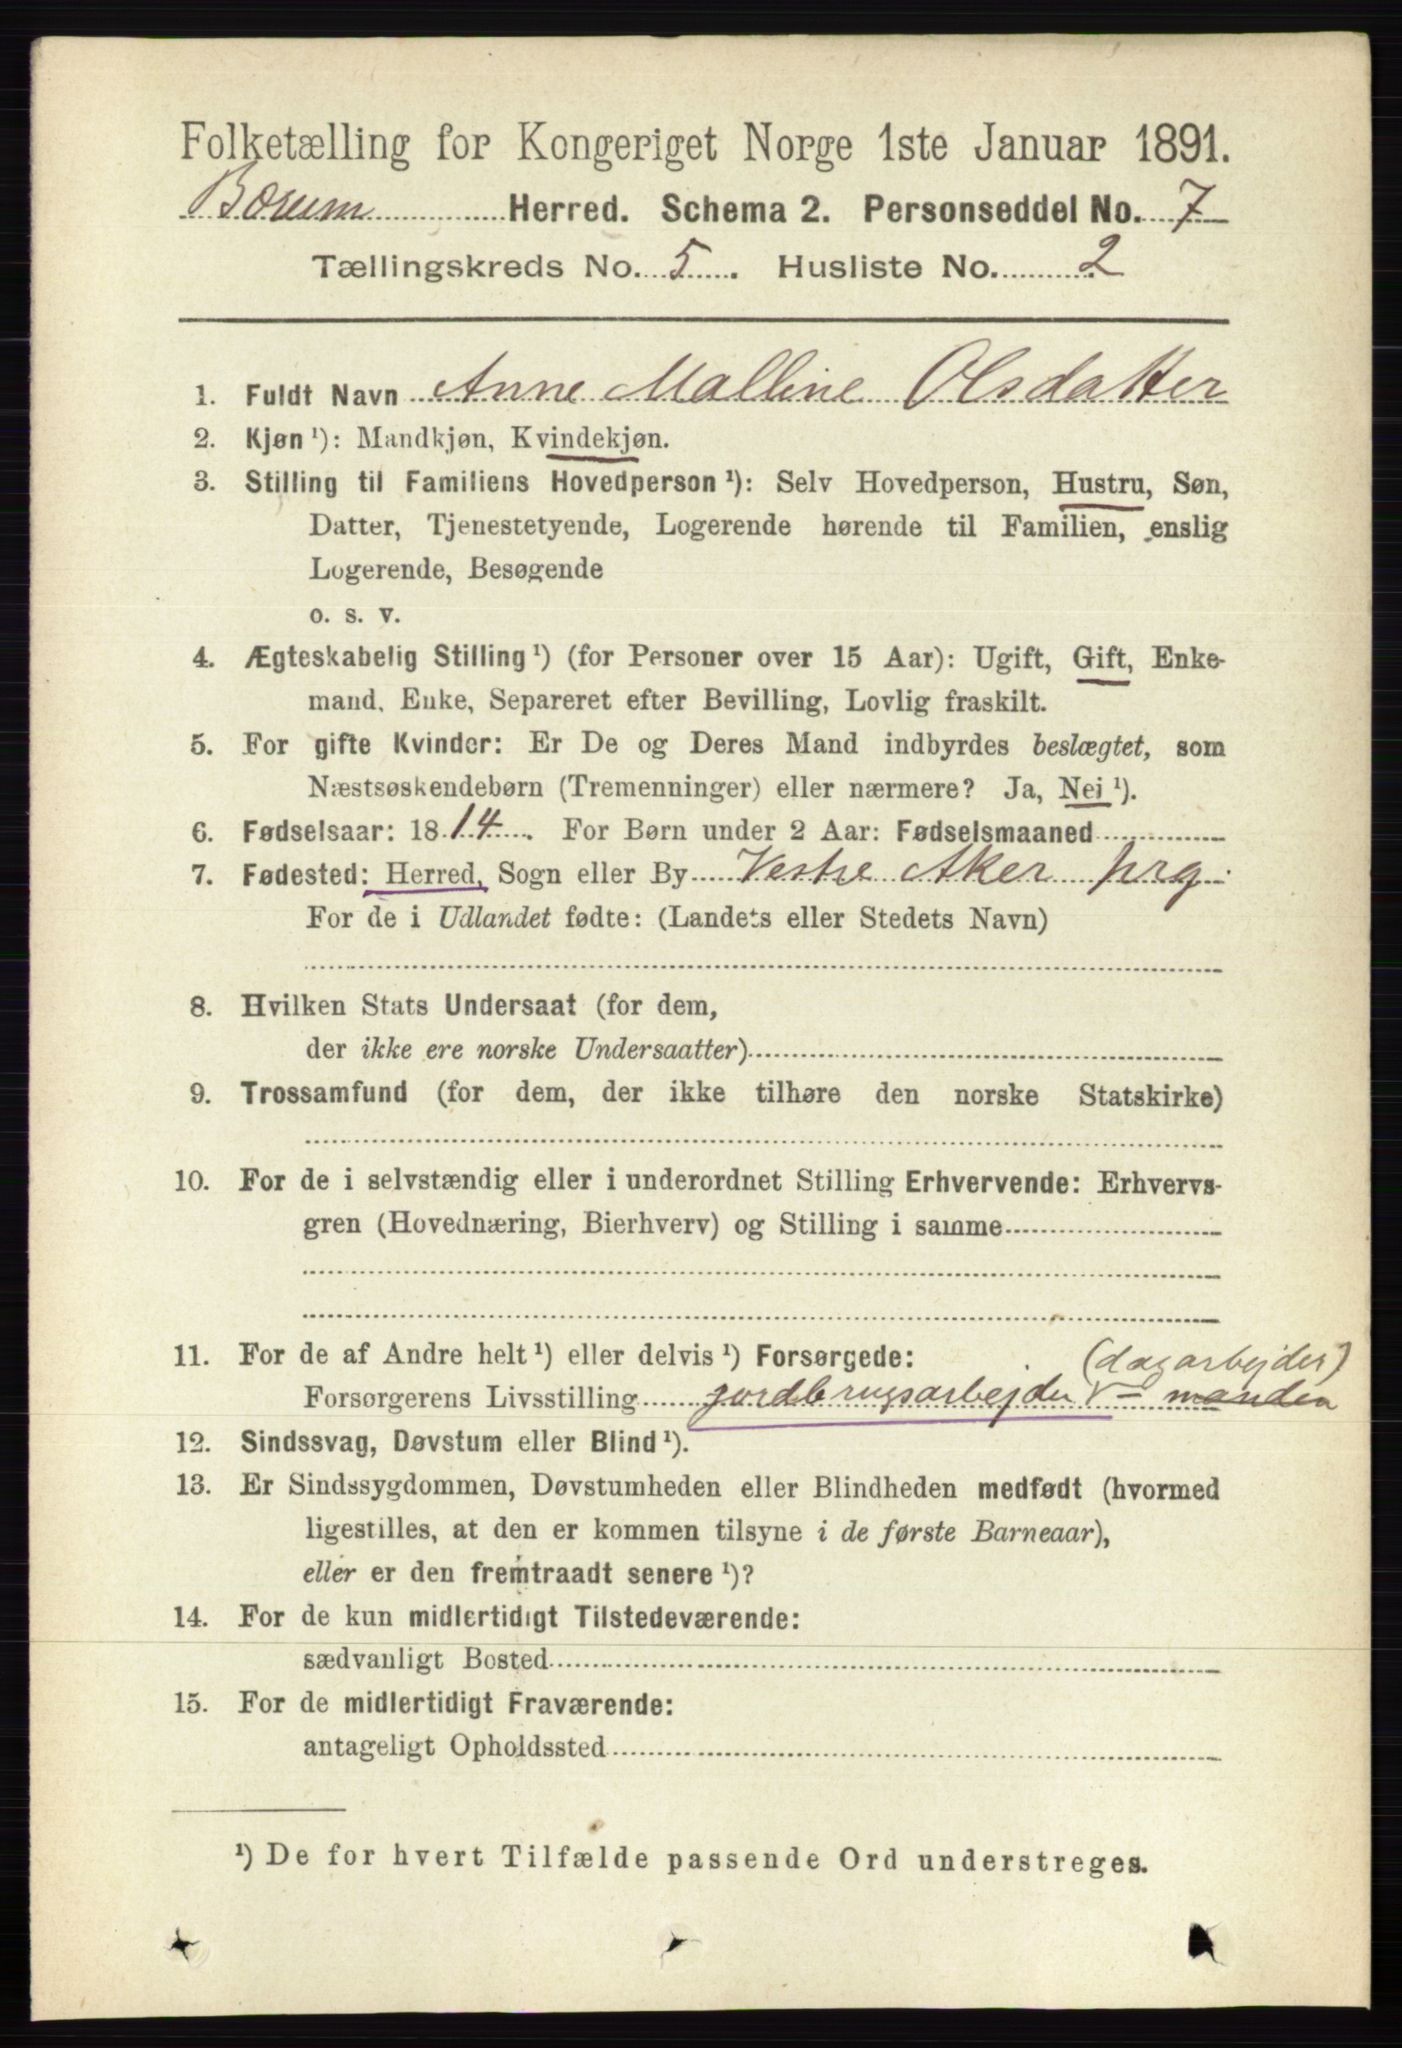 Folketælling for Kongeriget Norge 1ste Januar 1891.
Bærum Herred. Schema 2. Personseddel No. 7
Tællingskreds No. 5. Husliste No. 2
1. Fuldt Navn Anne Malline Olsdatter
2. Kjøn¹): Mandkjøn, Kvindekjøn.
3. Stilling til Familiens Hovedperson¹): Selv Hovedperson, Hustru, Søn,
Datter, Tjenestetyende, Logerende hørende til Familien, enslig
Logerende, Besøgende
o. s. v.
4. Ægteskabelig Stilling¹) (for Personer over 15 Aar): Ugift, Gift, Enke-
mand, Enke, Separeret efter Bevilling, Lovlig fraskilt.
5. For gifte Kvinder: Er De og Deres Mand indbyrdes beslægtet, som
Næstsøskendebørn (Tremenninger) eller nærmere? Ja, Nei¹).
6. Fødselsaar: 1814. For Børn under 2 Aar: Fødselsmaaned
7. Fødested: Herred, Sogn eller By Vestre Aker prg.
For de i Udlandet fødte: (Landets eller Stedets Navn)
8. Hvilken Stats Undersaat (for dem,
der ikke ere norske Undersaatter)
9. Trossamfund (for dem, der ikke tilhøre den norske Statskirke)
10. For de i selvstændig eller i underordnet Stilling Erhvervende: Erhvervs-
gren (Hovednæring, Bierhverv) og Stilling i samme
11. For de af Andre helt¹) eller delvis¹) Forsørgede: (dagarbejder)
Forsørgerens Livsstilling jordbrugsarbejder manden
12. Sindssvag, Døvstum eller Blind¹).
13. Er Sindssygdommen, Døvstumheden eller Blindheden medfødt (hvormed
ligestilles, at den er kommen tilsyne i de første Barneaar),
eller er den fremtraadt senere¹)?
14. For de kun midlertidigt Tilstedeværende:
sædvanligt Bosted
15. For de midlertidigt Fraværende:
antageligt Opholdssted
¹) De for hvert Tilfælde passende Ord understreges.